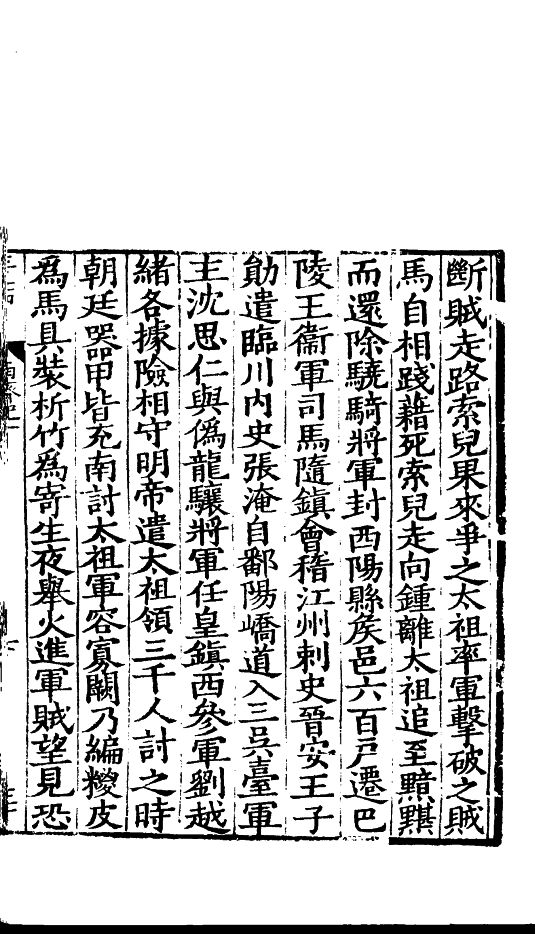 斷賊走路索兒果來爭之太祖率軍擊破之賊
馬自相踐藉死索兒走向鍾離太祖追至黯黮
而還除驍騎將軍封西陽縣矦邑六百戸遷巴
陵王衞軍司馬隨鎭會稽江州刺史晉安王子
勛遣臨川内史張淹自鄱陽嶠道入三吳臺軍
主沈思仁與僞龍驤將軍任皇鎭西參軍劉越
緒各據險相守明帝遣太祖領三千人討之時
朝廷器甲皆充南討太祖軍容寡闕乃編㯶皮
爲馬具裝析竹爲寄生夜舉火進軍賊望見恐